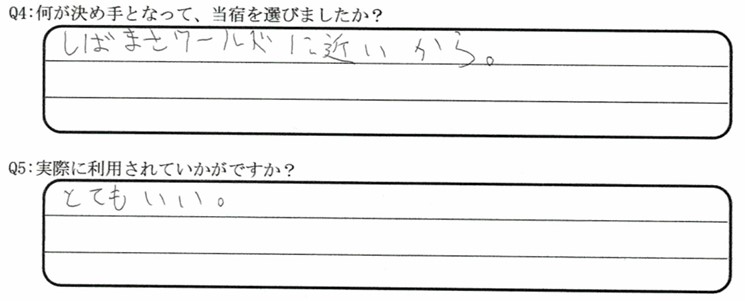 Q4:何が決め手となって、当宿を選びましたか？
しばまさワールドに近いから。
Q5:実際に利用されていかがですか？
とてもいい。